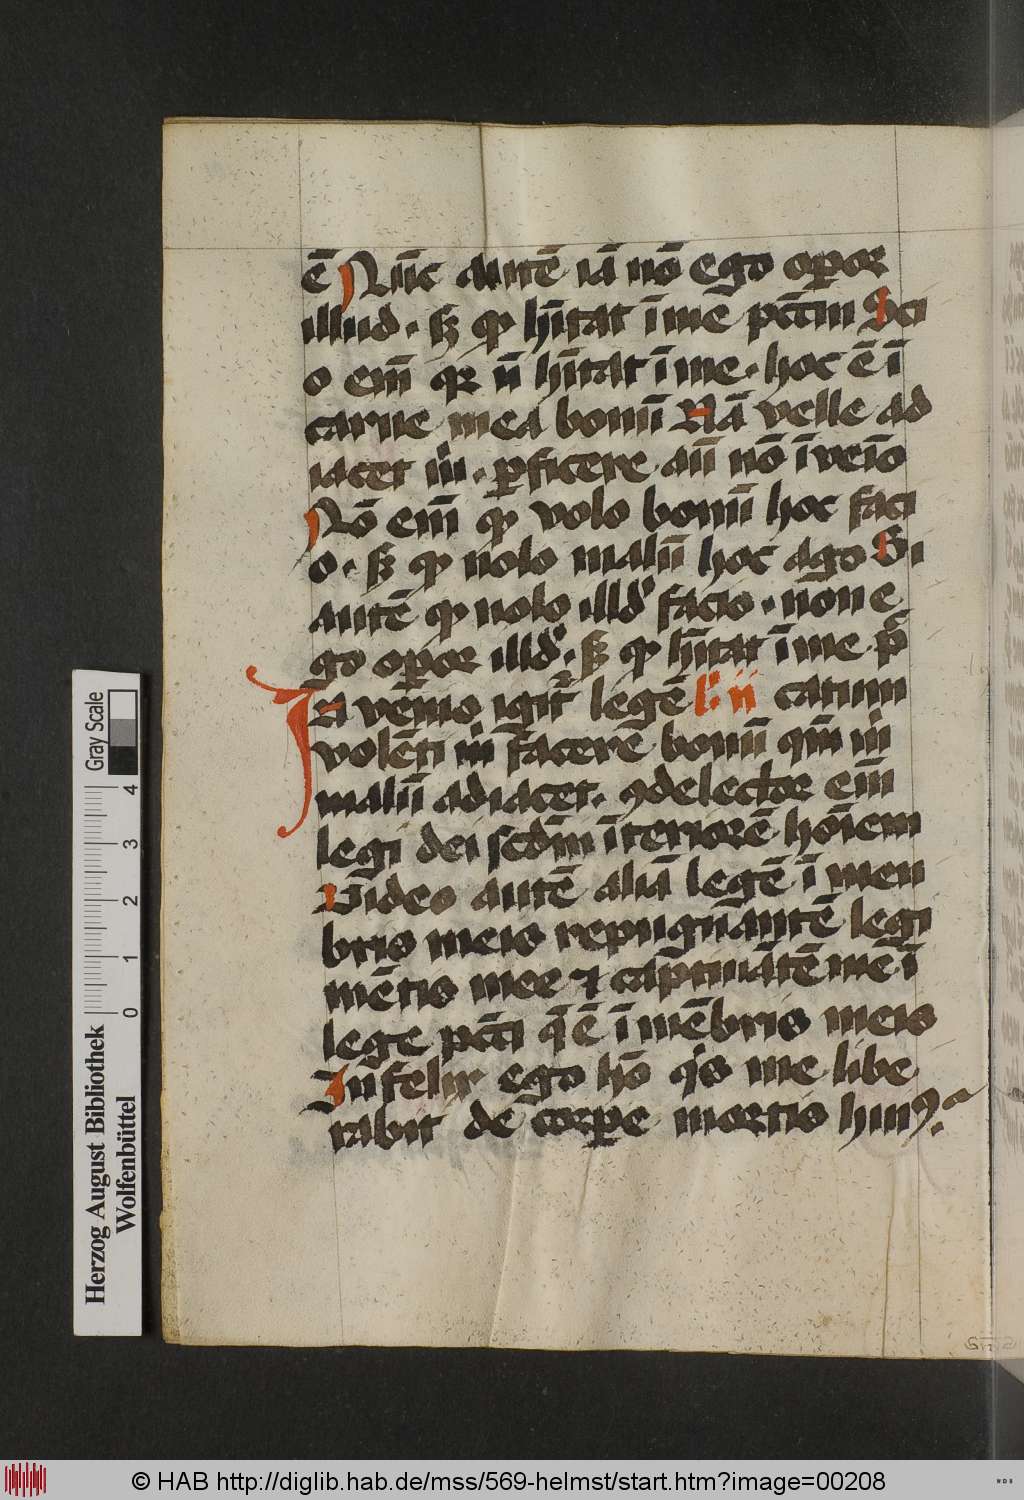 ē Nūc autē iā nō ego oꝑor
illud · sꝫ qď hītat ī me pctm̄ Sci
o em̄ qꝛ n̄ hītat ī me · hoc ē ī
carne mea bonū Nā velle ad
iacet m̄ · ꝑficere aūt nō īveīo
Nō em̄ qď volo bonū hoc faci
o · sꝫ qď nolo malū hoc ago Si
autē qď nolo illd̓ facio · nōn e
go oꝑor illd̓ · sꝫ qď hītat ī me p
catum
In venīo igit̄ legē l' ii
volēti m̄ facere bonū qm̄ m̄
malū adiacet · ꝯdelector em̄
legi dei scdm̄ īteriorē hōiem
Video autē aliā legē ī men
bris meis repugnantē legi
mētis mee ⁊ captiuātē me ī
lege pcti q̄ ē ī mēbris meis
Infelix ego hō qis me libe
rabit de corꝑe mortis huiꝰ
Gray Scale
4
3
2
1
0
Herzog August Bibliothek
Wolfenbüttel
© HAB http://diglib.hab.de/mss/569-helmst/start.htm?image=00208